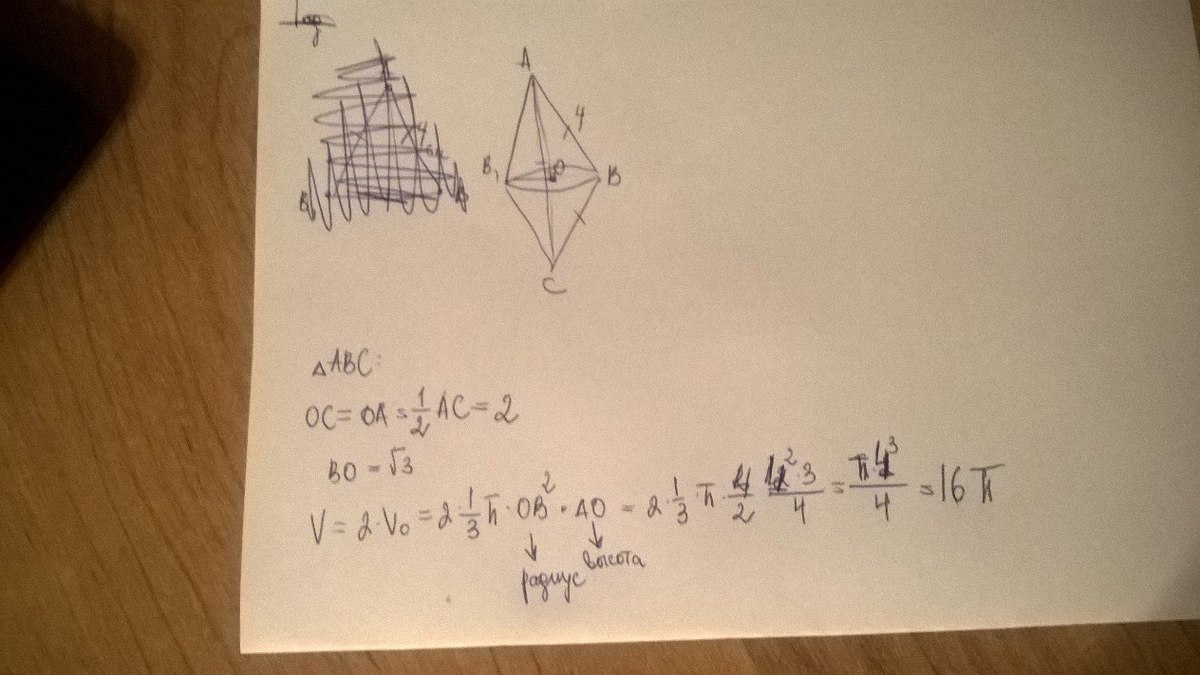 A
4
B₁ O B
C
△ABC:
OC = OA = 1/2 AC = 2
BO = √3
V = 2·V₀ = 2·1/3 π·OB²·AO = 2·1/3·π·4/2 4²·3/4 = π·4³/4 = 16π
радиус высота